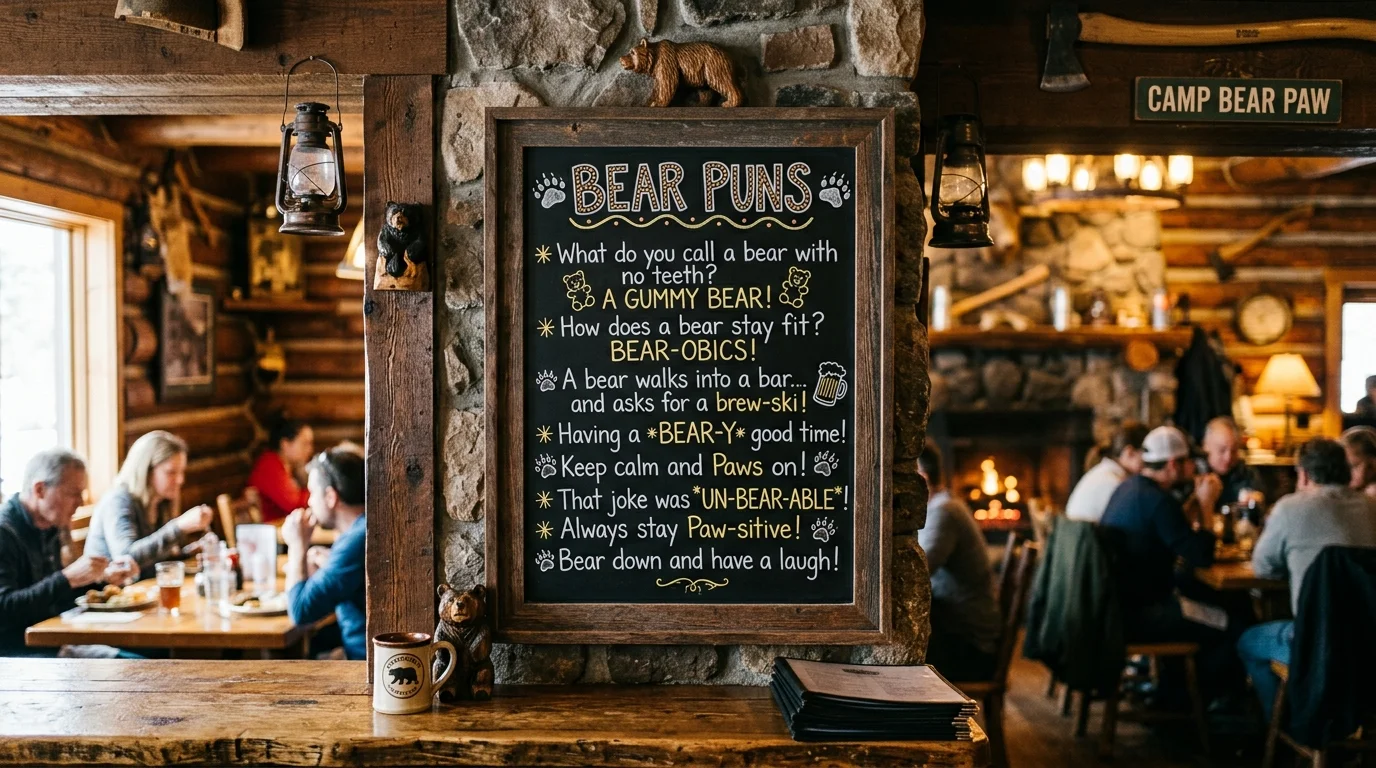 CAMP BEAR PAW
BEAR PUNS
What do you call a bear with
no teeth?
A GUMMY BEAR!
How does a bear stay fit?
BEAR-OBICS!
A bear walks into a bar....
and asks for a brew-ski!
Having a *BEAR-Y* good time!
Keep calm and Paws on!
That joke was *UN-BEAR-ABLE*!
Always stay Paw-sitive!
Bear down and have a laugh!